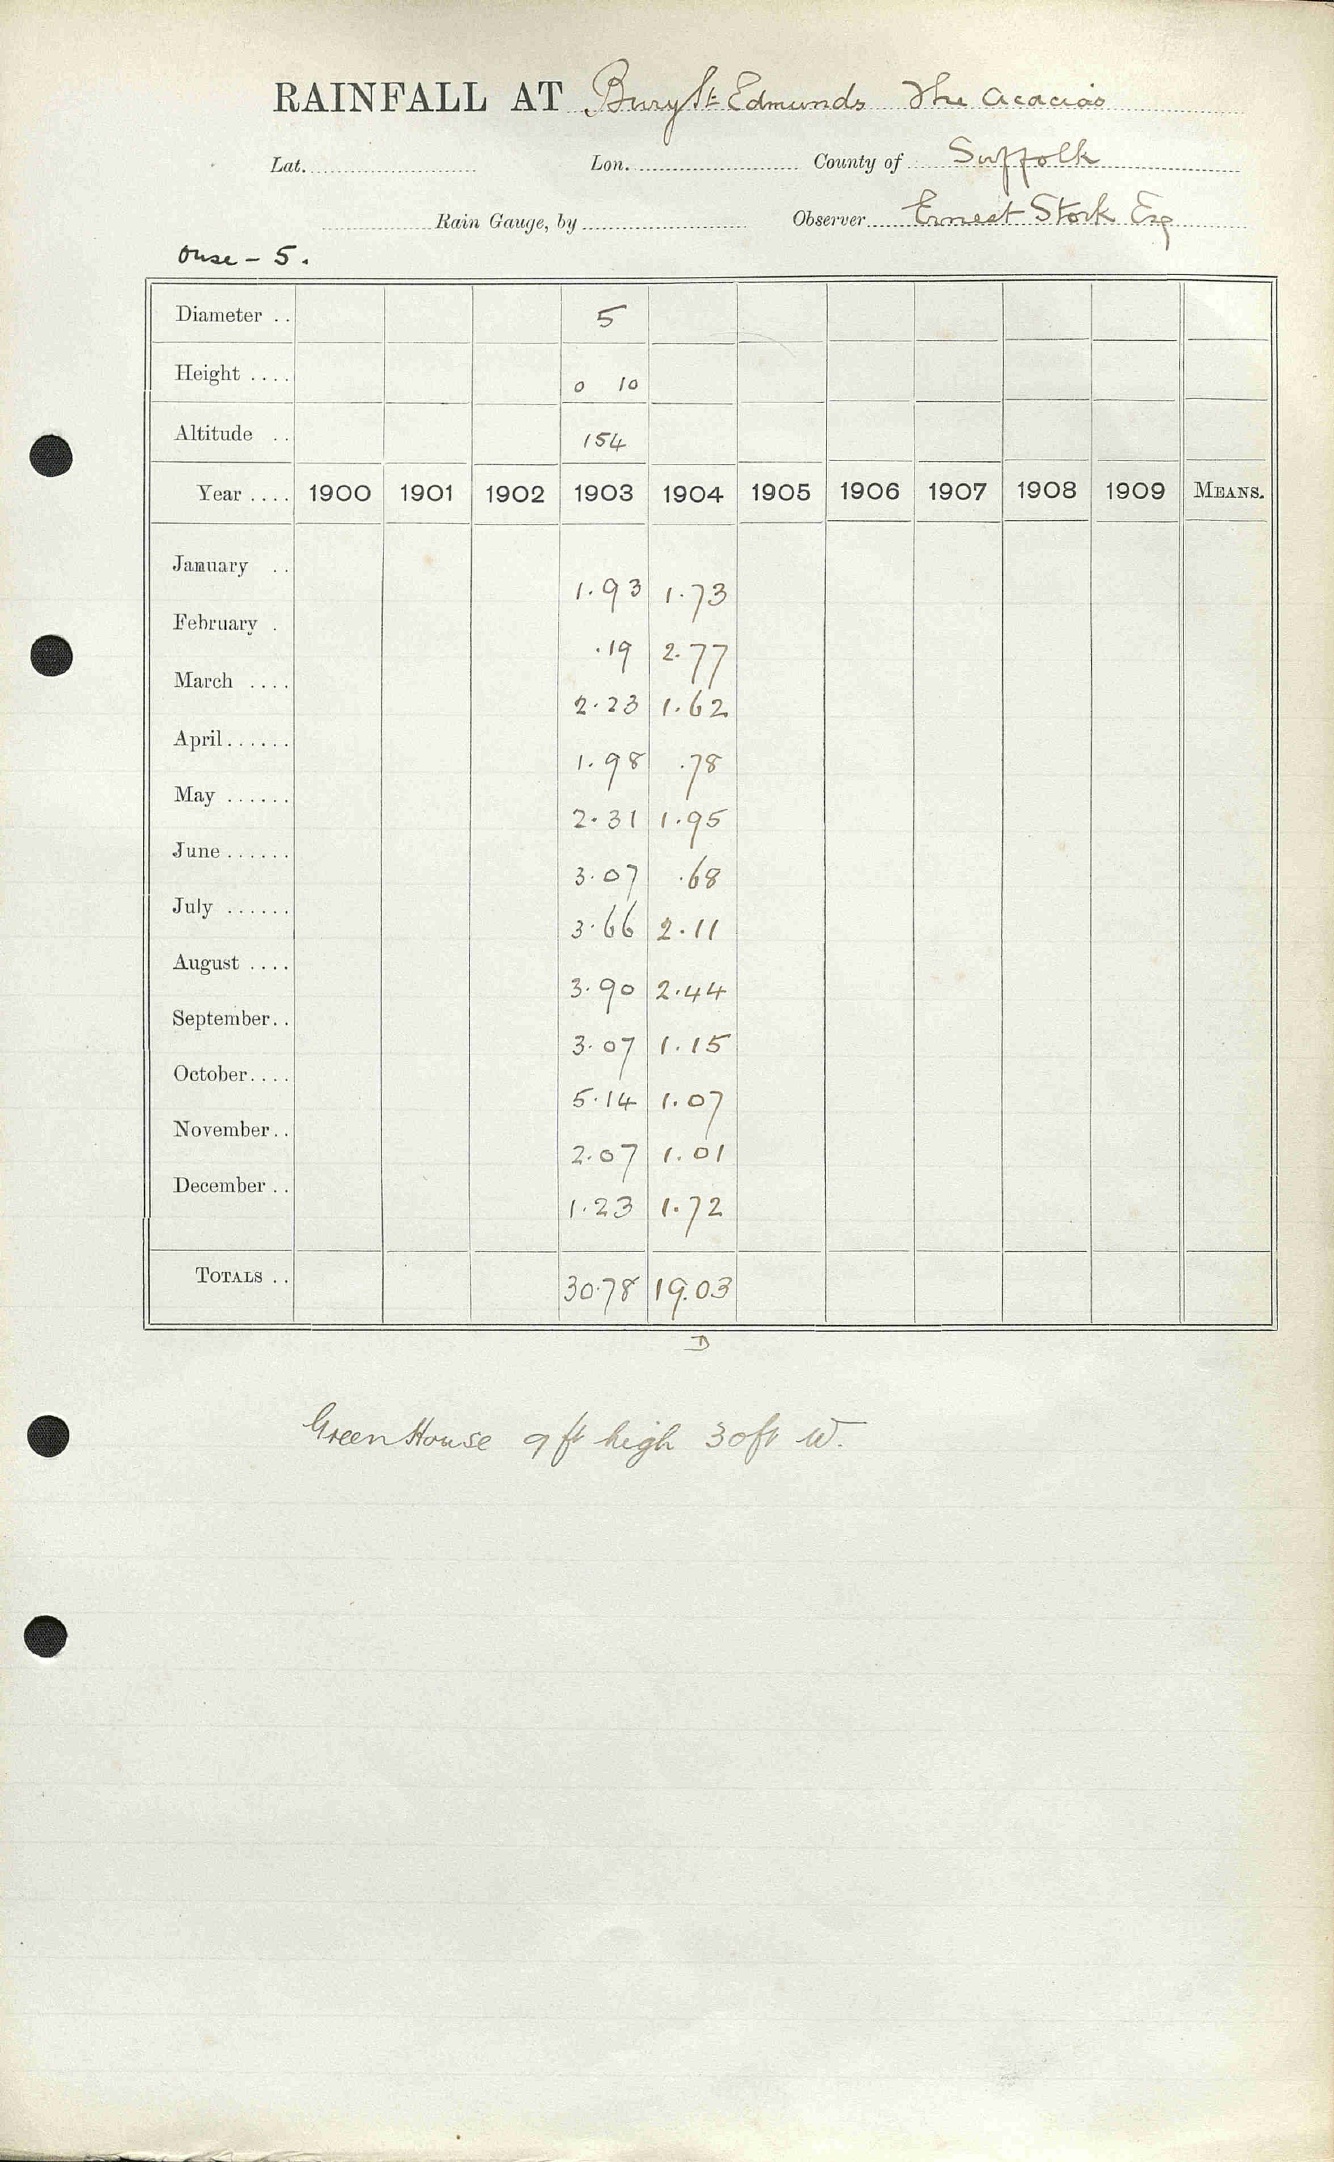 RAINFALL AT Bury St Edmunds The Acacias
Lat. Lon. County of Suffolk
Rain Gauge, by Observer Ernest Stork Esq
Ouse - 5.
Diameter .. 5
Height .... 0 10
Altitude .. 154
Year .... 1900 1901 1902 1903 1904 1905 1906 1907 1908 1909 MEANS.
January .. 1.93 1.73
February . .19 2.77
March .... 2.23 1.62
April...... 1.98 .78
May ...... 2.31 1.95
June ...... 3.07 .68
July ...... 3.66 2.11
August .... 3.90 2.44
September.. 3.07 1.15
October.... 5.14 1.07
November.. 2.07 1.01
December .. 1.23 1.72
TOTALS .. 30.78 19.03
D
Green House 9 ft high 30 ft W.